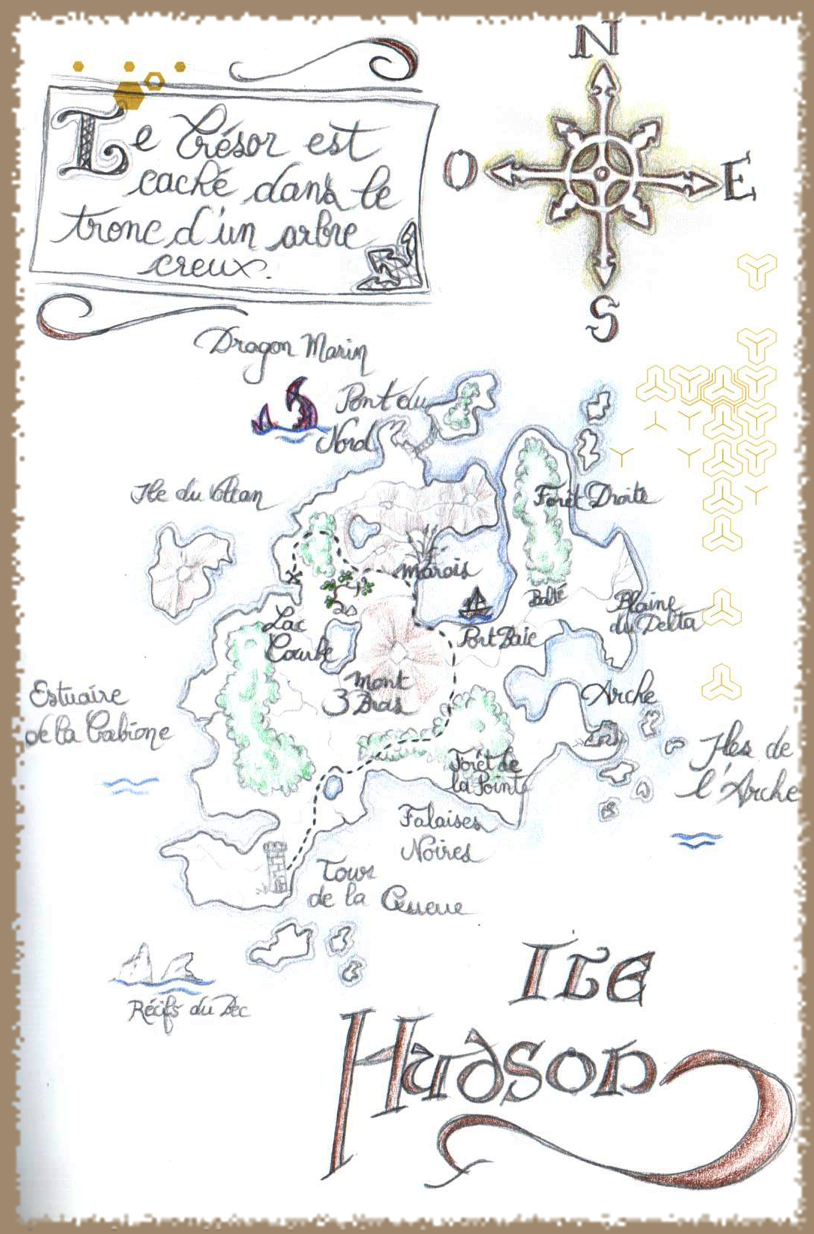 N
O
E
S
Le Trésor est
caché dans le
tronc d'un arbre
creux.
Dragon Marin
Pont du
Nord
Ile du Volcan
Forêt Droite
Marais
Port Baie
Plaine
du Delta
Lac
Courbe
Mont
3 Bras
Estuaire
de la
Arche
Iles de
l'Arche
Forêt de
la Point
Falaises
Noires
Tour
de la Queue
Récifs du Bec
ILE
Hudson